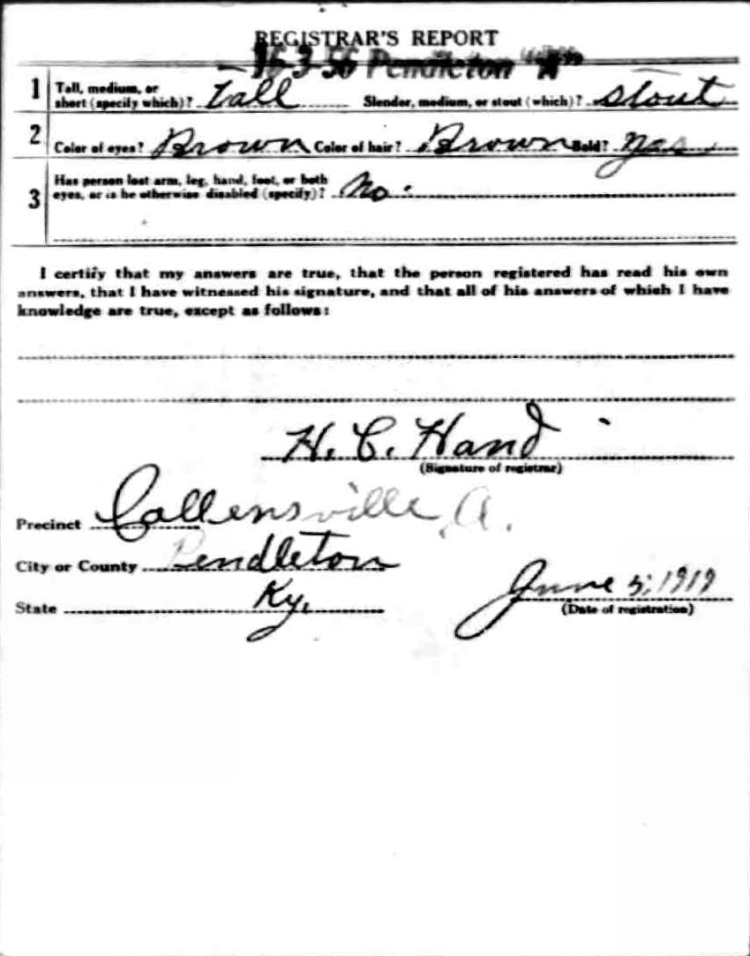 REGISTRAR'S REPORT
16-3-56 Pendleton "A"
1 Tall, medium, or short (specify which)? Tall Slender, medium, or stout (which)? stout
2 Color of eyes? Brown Color of hair? Brown Bald? Yes
3 Has person lost arm, leg, hand, foot, or both eyes, or is he otherwise disabled (specify)? No.
I certify that my answers are true, that the person registered has read his own
answers, that I have witnessed his signature, and that all of his answers of which I have
knowledge are true, except as follows:
H. C. Hand
(Signature of registrar)
Precinct Callensville A.
City or County Pendleton
State Ky. June 5, 1917
(Date of registration)